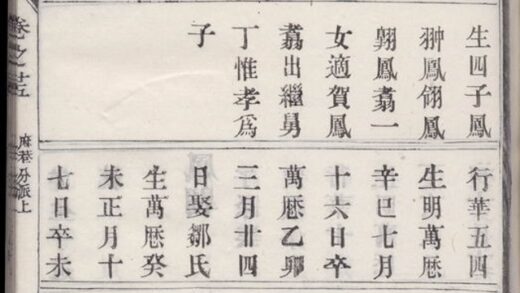 生四子鳳
翀鳳翎鳳
翱鳳翥一
女適賀鳳
翥出繼舅
丁惟孝爲
子
行華五四
生明萬曆
辛巳七月
十六日卒
萬曆乙卯
三月廿四
日娶鄒氏
生萬曆癸
未正月十
七日卒未
卷之
麻巷分派上